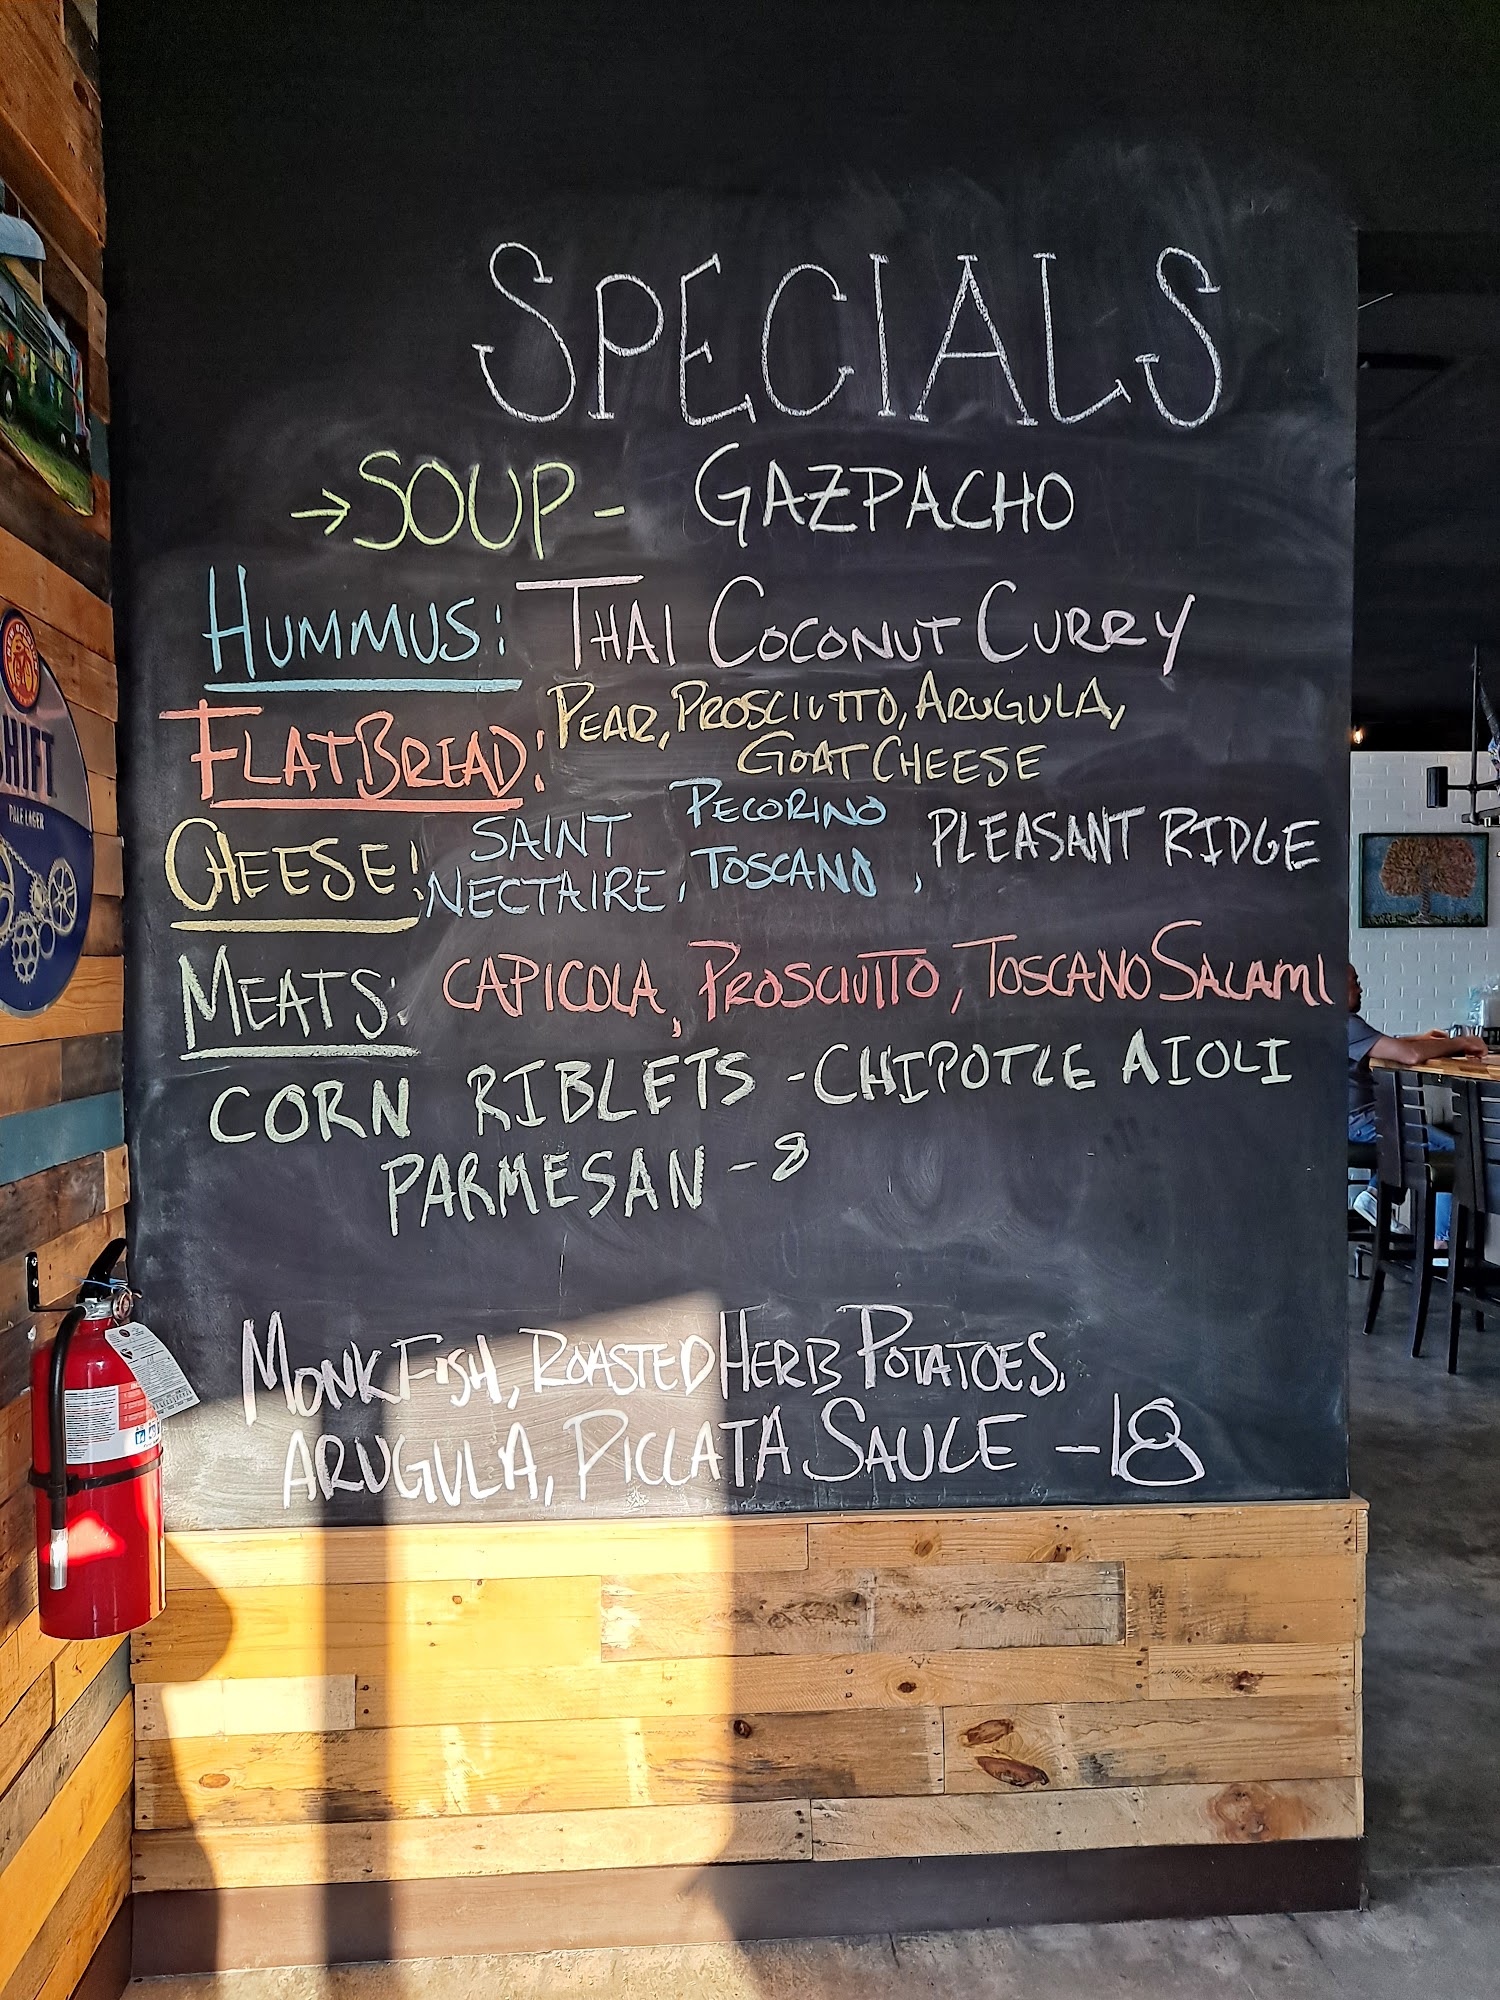 SPECIALS
→SOUP - GAZPACHO
HUMMUS: THAI COCONUT CURRY
FLATBREAD: PEAR, PROSCIUTTO, ARUGULA,
GOAT CHEESE
CHEESE: SAINT NECTAIRE, PECORINO TOSCANO, PLEASANT RIDGE
MEATS: CAPICOLA, PROSCIUTTO, TOSCANO SALAMI
CORN RIBLETS - CHIPOTLE AIOLI
PARMESAN - 8
MONKFISH, ROASTED HERB POTATOES,
ARUGULA, PICCATA SAUCE - 18
HIFT
PALE LAGER